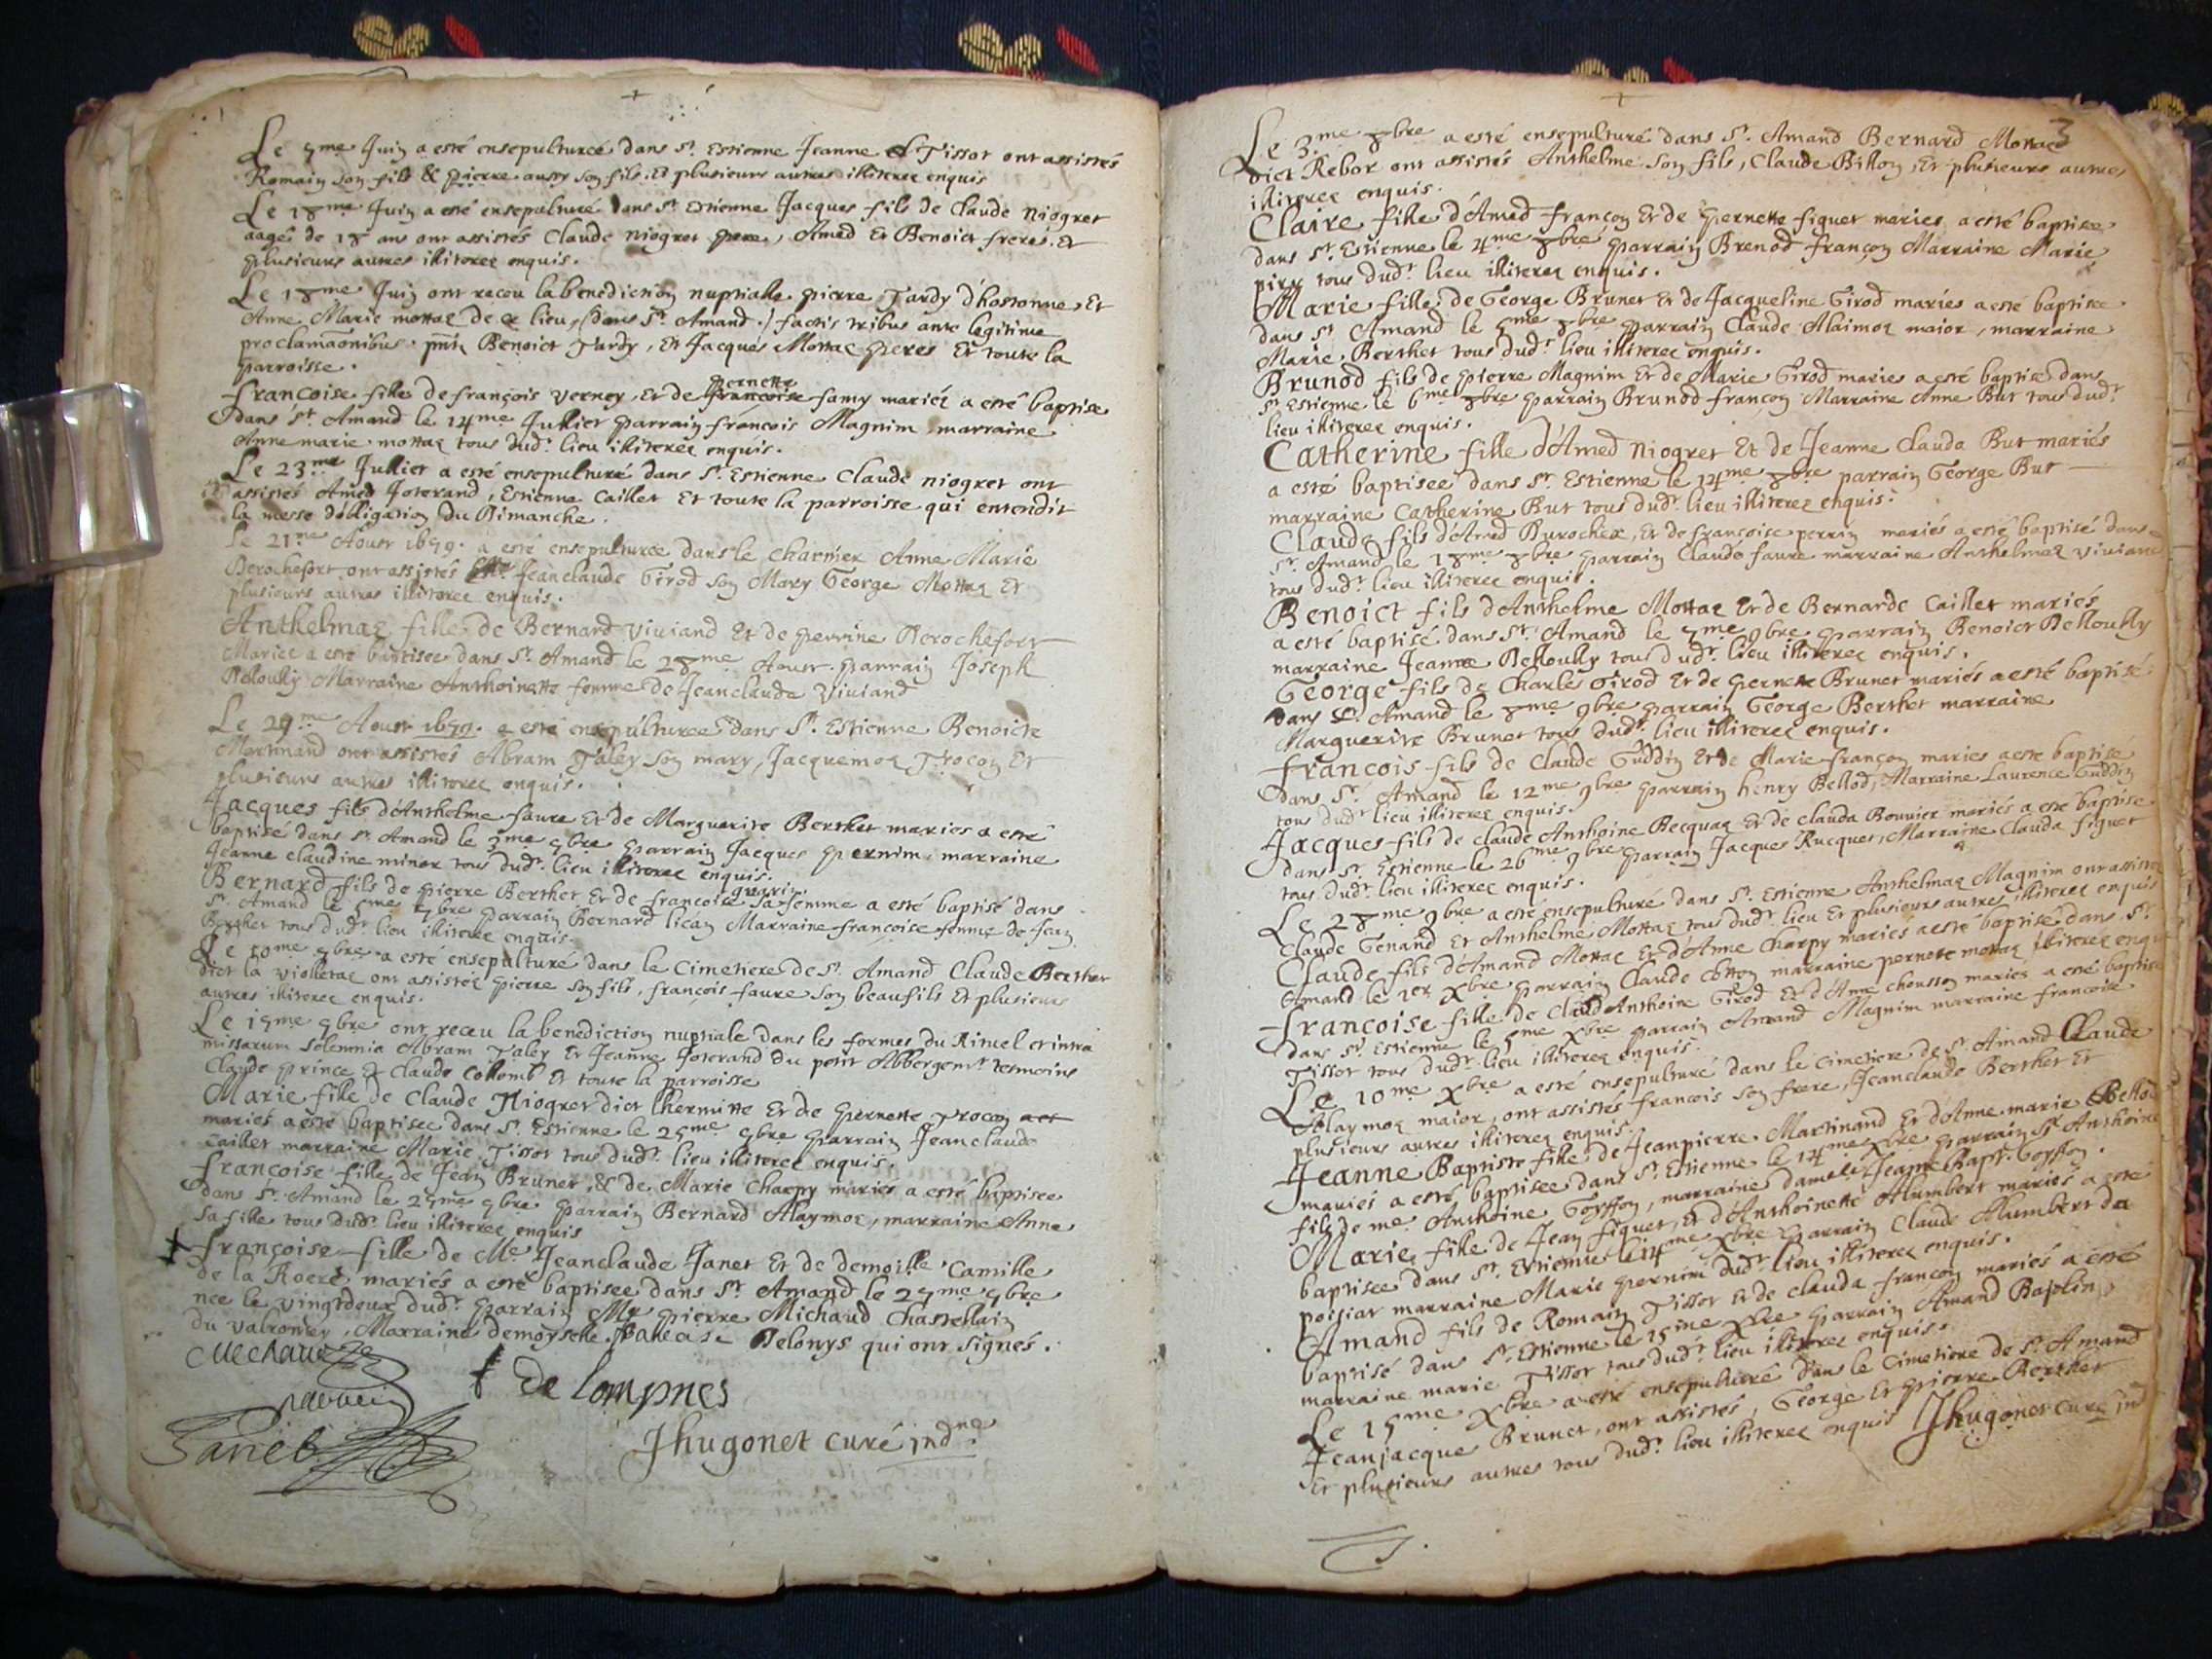 Le 5me Juin a esté ensepulturée dans St. Estienne Jeanne Tissot ont assistés
Romain son fils & pierre aussy son fils. Et plusieurs autres illiterez enquis
Le 18me Juin a esté ensepulturé dans St Estienne Jacques fils de Claude Niogret
aagé de 18 ans ont assistés Claude Niogret pere, Amed Et Benoict freres. et
plusieurs autres illiterez enquis.
Le 18me Juin ont receu la benediction nuptialle pierre Tardy d'hostonne, Et
Anne Marie mottaz de ce lieu, (dans St. Amand.) factis tribus ante legitime
proclamaonibus. pnte Benoict Tardy, Et Jacques Mottaz peres Et toute la
parroisse.
francoise fille de françois Verney, Et de francoise pernette famy mariéz a esté baptise
dans St Amand le 14me Jullict parrain francois Magnim marraine
Anne marie mottaz tous dudt lieu illiterez enquis.
Le 23me Jullict a esté ensepulturé dans St. Estienne Claude niogret ont
assistés Amed Joterand, Estienne Caillet Et toute la parroisse qui entendit
la messe d'obligation du Dimanche.
Le 21me Aoust 1659. a esté ensepulturée dans le charnier Anne Marie
Derochefort ont assistés Jeanclaude Girod son Mary George Mottaz Et
plusieurs autres illiterez enquis.
Anthelmaz fille de Bernard Viviand Et de perrine Derochefort
Mariez a esté baptisee dans St. Amand le 28me Aoust. parrain Joseph
Delloully Marraine Anthoinette femme de Jeanclaude Viviand
Le 29me Aoust 1659. a esté ensepulturee dans St. Estienne Benoicte
Martinand ont assistés Abram Taley son mary, Jacquemoz Trocon Et
plusieurs autres illiterez enquis.
Jacques fils d'Anthelme faure Et de Marguerite Berthet mariés a esté
baptisé dans St Amand le 3me 9bre parrain Jacques pernim, marraine
Jeanne claudine minor tous dudt. lieu illiterez enquis.
Bernard fils de pierre Berthet Et de francoise guarin sa femme a esté baptisé dans
St. Amand le 5me 9bre parrain Bernard lican Marraine francoise femme de Jean
Berthet tous dudt lieu illiterez enquis.
Le 10me 9bre a esté ensepulturé dans le Cimetiere de St. Amand Claude Berthet
dict la violletaz ont assistéz pierre son fils, françois faure son beaufils Et plusieurs
autres illiterez enquis.
Le 15me 9bre ont receu la benediction nuptiale dans les formes du Rituel et intra
missarum solemnia Abram Taley Et Jeanne Joterand du petit Abbergemt tesmoins
Claude prince & Claude Collomb Et toute la parroisse
Marie fille de Claude Niogret dict lhermitte Et de pernette Trocon
mariés a esté baptisee dans St. Estienne le 25me 9bre parrain Jeanclaude
Caillet marraine Marie Tissot tous dudt. lieu illiterez enquis.
francoise fille de Jean Brunet, & de Marie Charpy mariés a esté baptisee
dans St. Amand le 25me 9bre parrain Bernard Alaymoz, marraine Anne
sa fille tous dudt. lieu illiterez enquis
françoise fille de Me Jeanclaude Janet Et de demoille Camille
de la Roere mariés a esté baptisee dans St Amand le 25me 9bre
nee le vingtdeux dudt. parrain Me pierre Michaud Chastellain
du Valromey, Marraine demoyselle Delomps qui ont signés.
Michaud
de lompnes
Janet
Jhugonet curé indne
3
Le 3.me 8bre a esté ensepulturé dans St. Amand Bernard Mottaz
dict Rebor ont assistés Anthelme son fils, Claude Billon, Et plusieurs autres
illiterez enquis.
Claire fille d'Amed françon Et de pernette figuet mariez a esté baptisee
dans St. Estienne le 4me 8bre parrain Brenod françon Marraine Marie
tous dudt. lieu illiterez enquis.
Marie fille de George Brunet Et de Jacqueline Girod mariés a esté baptisee
dans St Amand le 5me 8bre parrain Claude Alaimoz maior, marraine
Marie Berthet tous dudt. lieu illiterez enquis.
Brunod fils de pierre Magnim Et de Marie Girod mariés a esté baptisé dans
St Estienne le 6me 8bre parrain Brunod françon Marraine Anne But tous dudt
lieu illiterez enquis.
Catherine fille d'Amed Niogret Et de Jeanne Clauda But mariés
a esté baptisee dans St. Estienne le 14me 8bre parrain George But
marraine Catherine But tous dudt. lieu illiterez enquis.
Claude fils d'Amed Durochez, Et de francoise perrin mariés a esté baptisé dans
St. Amand le 18me 8bre parrain Claude faure marraine Anthelmaz viviand
tous dudt. lieu illiterez enquis.
Benoict fils d'Anthelme Mottaz Et de Bernarde Caillet mariés
a esté baptisé dans St. Amand le 5me 9bre parrain Benoict Delloully
marraine Jeanne Delloully tous dudt. lieu illiterez enquis.
George fils de Charles Girod Et de pernette Brunet mariés a esté baptisé
dans St. Amand le 8me 9bre parrain George Berthet marraine
Marguerite Brunet tous dudt. lieu illiterez enquis.
francois fils de Claude Guddin Et de Marie françon maries a esté baptisé
dans St. Amand le 12me 9bre parrain henry Bellod, Marraine Laurence Guddin
tous dudt lieu illiterez enquis.
Jacques fils de claude Anthoine Becquaz Et de clauda Bouvier mariés a esté baptisé
dans St. Estienne le 26me 9bre parrain Jacques Rucquet, Marraine Clauda figuet
tous dudt. lieu illiterez enquis.
Le 28me 9bre a esté ensepulturé dans St. Estienne Anthelmaz Magnim ont assistés
Claude Genand Et Anthelme Mottaz tous dudt. lieu Et plusieurs autres illiterez enquis
Claude fils d'Amand Mottaz Et d'Anne Charpy mariés a esté baptisé dans St.
Amand le 1er Xbre parrain Claude Cotton marraine pernete mottaz illiterez enquis
francoise fille de Claud Anthoine Girod Et d'Anne chousson mariez a esté baptisee
dans St. Estienne le 5me Xbre parrain Amand Magnim marraine francoise
Tissot tous dudt. lieu illiterez enquis.
Le 10me Xbre a esté ensepulturé dans le cimetiere de St. Amand Claude
Alaymoz maior, ont assistés francois son frere, Jeanclaude Berthet Et
plusieurs autres illiterez enquis.
Jeanne Baptiste fille de Jeanpierre Martinand Et d'Anne marie Bellod
mariés a esté baptisee dans St. Estienne le 14me Xbre parrain Sr. Anthoine
fils de me. Anthoine Goyffon, marraine damelle Jeanne Bapt. Goyffon.
Marie fille de Jean figuet, Et d'Anthoinette Alumbert mariés a esté
baptisee dans St. Estienne le 14me Xbre parrain Claude Alumbert da
poisiat marraine Marie pernim dudt. lieu illiterez enquis.
Amand fils de Romain Tissot Et de clauda françon mariés a esté
baptisé dans St. Estienne le 15me Xbre parrain Amand Bajolin
marraine marie Tissot tous dudt. lieu illiterez enquis.
Le 15me Xbre a esté ensepulturé dans le Cimetiere de St. Amand
Jeanjacque Brunet, ont assistés, George Et pierre Berthet
Et plusieurs autres tous dudt. lieu illiterez enquis Jhugonet curé ind